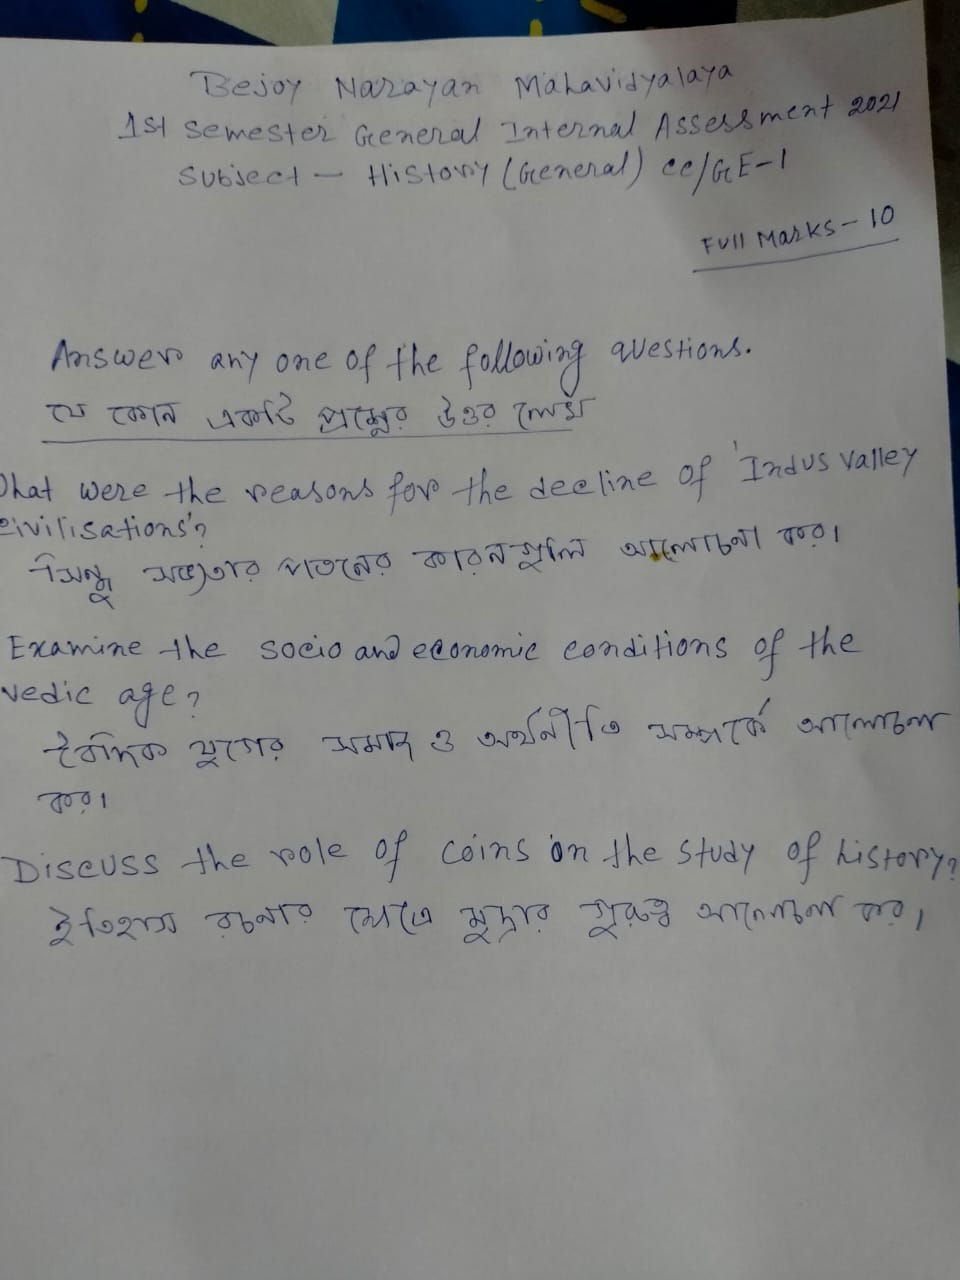 Bejoy Narayan Mahavidyalaya
1st Semester General Internal Assessment 2021
Subject - History (General) CC/GE-1
Full Marks - 10
Answer any one of the following questions.
যে কোন একটি প্রশ্নের উত্তর লেখ
What were the reasons for the decline of 'Indus valley
civilisations'?
সিন্ধু সভ্যতার পতনের কারনগুলি আলোচনা কর।
Examine the socio and economic conditions of the
vedic age?
বৈদিক যুগের সমাজ ও অর্থনীতি সম্পর্কে আলোচনা
কর।
Discuss the role of coins on the study of history?
ইতিহাস রচনার ক্ষেত্রে মুদ্রার গুরুত্ব আলোচনা কর।